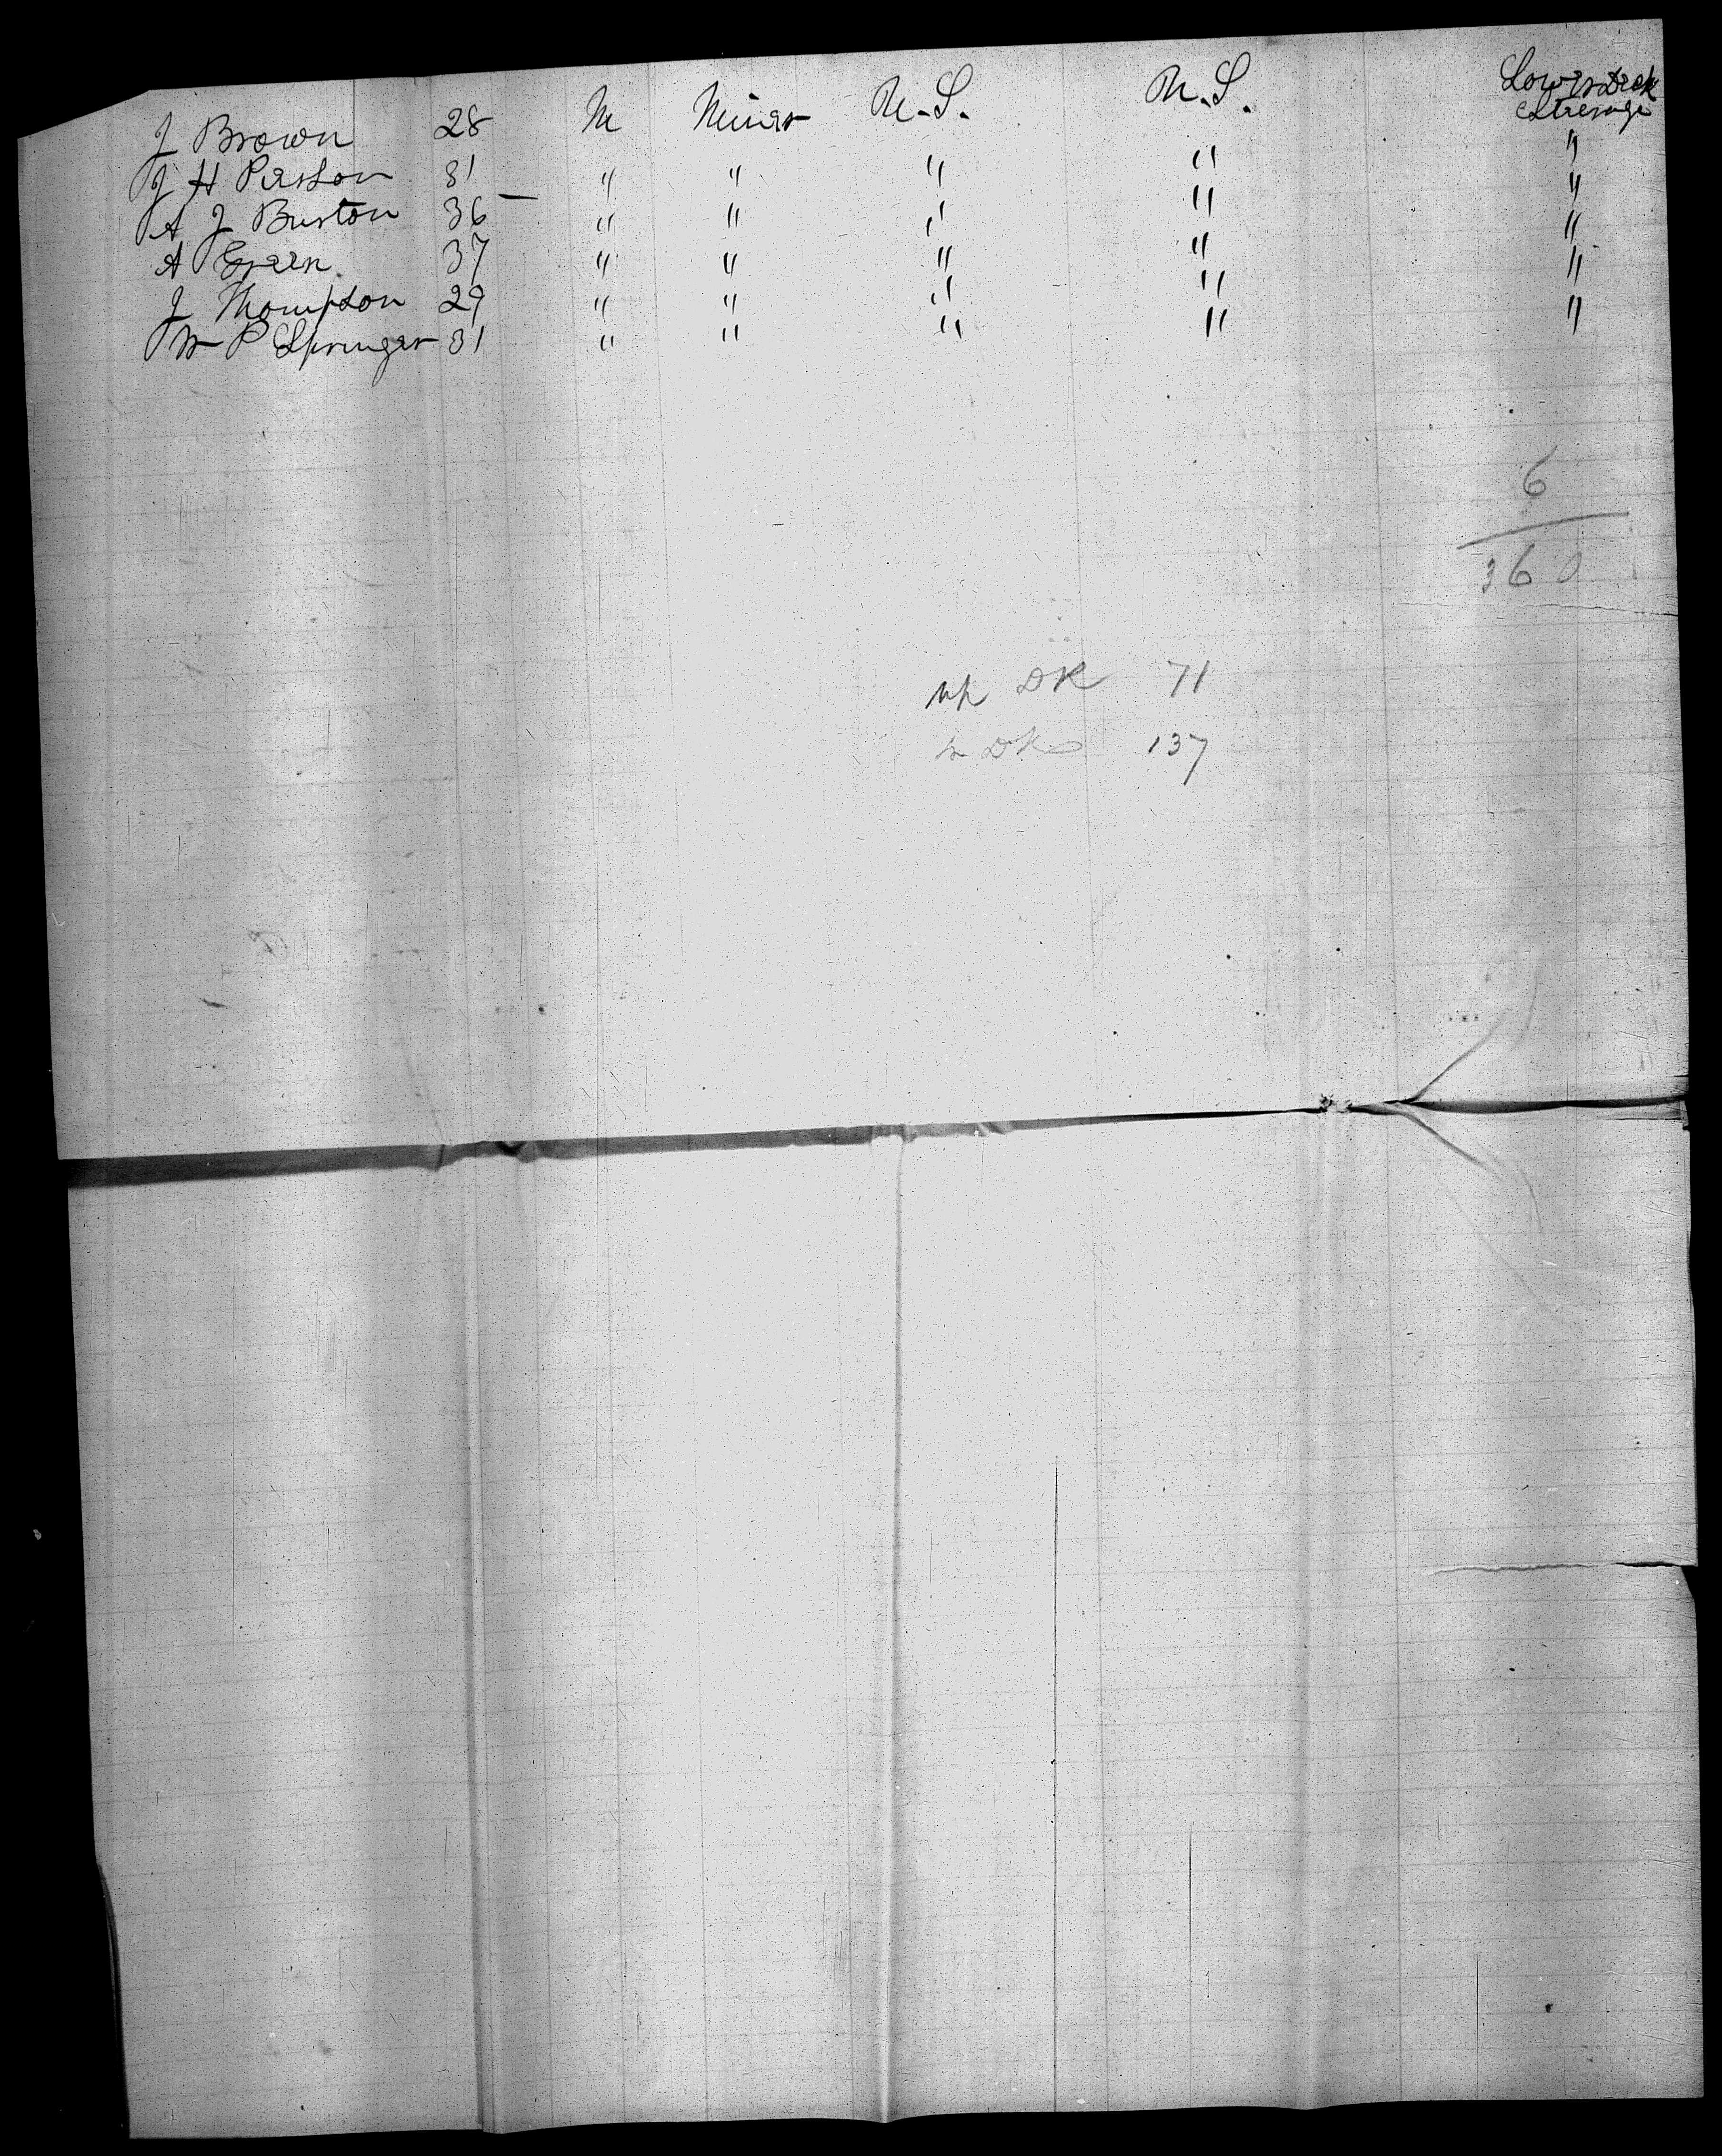 J Brown 28 M Miner U.S. U.S. Lower Deck Steerage
J H Parson 31 " " " " "
A J Burton 36 " " " " "
A Green 37 " " " " "
J Thompson 29 " " " " "
W P Springer 31 " " " " "
6
360
up DK 71
DK 137